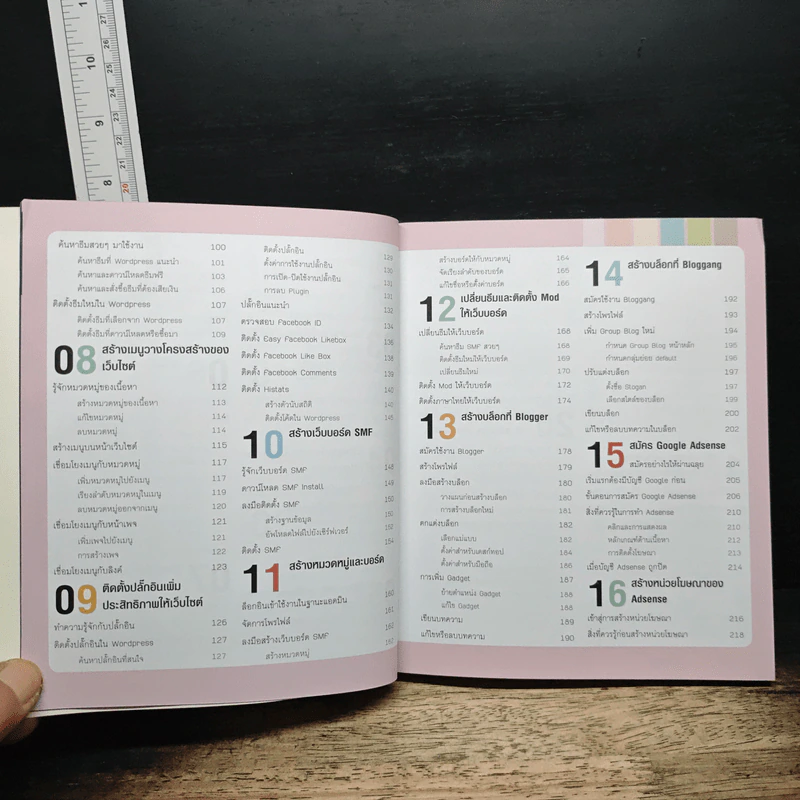 10
27
26
25
24
9
23
22
21
8
20
ค้นหาธีมสวยๆ มาใช้งาน 100
ค้นหาธีมที่ Wordpress แนะนำ 101
ค้นหาและดาวน์โหลดธีมฟรี 103
ค้นหาและสั่งซื้อธีมที่ต้องเสียเงิน 106
ติดตั้งธีมใหม่ใน Wordpress 107
ติดตั้งธีมที่เลือกจาก Wordpress 107
ติดตั้งธีมที่ดาวน์โหลดหรือซื้อมา 109
08 สร้างเมนูวางโครงสร้างของ
เว็บไซต์
รู้จักหมวดหมู่ของเนื้อหา 112
สร้างหมวดหมู่ของเนื้อหา 113
แก้ไขหมวดหมู่ 114
ลบหมวดหมู่ 114
สร้างเมนูบนหน้าเว็บไซต์ 115
เชื่อมโยงเมนูกับหมวดหมู่ 117
เพิ่มหมวดหมู่ไปยังเมนู 117
เรียงลำดับหมวดหมู่ในเมนู 119
ลบหมวดหมู่ออกจากเมนู 120
เชื่อมโยงเมนูกับหน้าเพจ 121
เพิ่มเพจไปยังเมนู 121
การสร้างเพจ 122
เชื่อมโยงเมนูกับลิงค์ 123
09 ติดตั้งปลั๊กอินเพิ่ม
ประสิทธิภาพให้เว็บไซต์
ทำความรู้จักกับปลั๊กอิน 126
ติดตั้งปลั๊กอินใน Wordpress 127
ค้นหาปลั๊กอินที่สนใจ 127
ติดตั้งปลั๊กอิน 129
ตั้งค่าการใช้งานปลั๊กอิน 130
การเปิด-ปิดใช้งานปลั๊กอิน 131
การลบ Plugin 131
ปลั๊กอินแนะนำ 132
ตรวจสอบ Facebook ID 134
ติดตั้ง Easy Facebook Likebox 136
ติดตั้ง Facebook Like Box 138
ติดตั้ง Facebook Comments 138
ติดตั้ง Histats 140
สร้างตัวนับสถิติ 140
ติดตั้งโค้ดใน Wordpress 145
10 สร้างเว็บบอร์ด SMF
รู้จักเว็บบอร์ด SMF 148
ดาวน์โหลด SMF Install 149
ลงมือติดตั้ง SMF 150
สร้างฐานข้อมูล 150
อัพโหลดไฟล์ไปยังเซิร์ฟเวอร์ 152
ติดตั้ง SMF 154
11 สร้างหมวดหมู่และบอร์ด
ล็อกอินเข้าใช้งานในฐานะแอดมิน 160
จัดการโพรไฟล์ 161
ลงมือสร้างเว็บบอร์ด SMF 162
สร้างหมวดหมู่ 162
สร้างบอร์ดให้กับหมวดหมู่ 164
จัดเรียงลำดับของบอร์ด 165
แก้ไขชื่อหรือตั้งค่าบอร์ด 166
12 เปลี่ยนธีมและติดตั้ง Mod
ให้เว็บบอร์ด
เปลี่ยนธีมให้เว็บบอร์ด 168
ค้นหาธีม SMF สวยๆ 168
ติดตั้งธีมใหม่ให้เว็บบอร์ด 169
เปลี่ยนธีมใหม่ 170
ติดตั้ง Mod ให้เว็บบอร์ด 172
ติดตั้งภาษาไทยให้เว็บบอร์ด 174
13 สร้างบล็อกที่ Blogger
สมัครใช้งาน Blogger 178
สร้างโพรไฟล์ 179
ลงมือสร้างบล็อก 180
วางแผนก่อนสร้างบล็อก 180
การสร้างบล็อกใหม่ 181
ตกแต่งบล็อก 182
เลือกแม่แบบ 182
ตั้งค่าสำหรับเดสก์ทอป 183
ตั้งค่าสำหรับมือถือ 186
การเพิ่ม Gadget 187
ย้ายตำแหน่ง Gadget 188
แก้ไข Gadget 188
เขียนบทความ 189
แก้ไขหรือลบบทความ 190
14 สร้างบล็อกที่ Bloggang
สมัครใช้งาน Bloggang 192
สร้างโพรไฟล์ 193
เพิ่ม Group Blog ใหม่ 194
กำหนด Group Blog หน้าหลัก 195
กำหนดกลุ่มย่อย default 196
ปรับแต่งบล็อก 197
ตั้งชื่อ Slogan 197
เลือกสไตล์ของบล็อก 199
เขียนบล็อก 200
แก้ไขหรือลบบทความในบล็อก 202
15 สมัคร Google Adsense
สมัครอย่างไรให้ผ่านฉลุย 204
เริ่มแรกต้องมีบัญชี Google ก่อน 205
ขั้นตอนการสมัคร Google Adsense 206
สิ่งที่ควรรู้ในการทำ Adsense 210
คลิกและการแสดงผล 210
หลักเกณฑ์ด้านเนื้อหา 212
การติดตั้งโฆษณา 213
เมื่อบัญชี Adsense ถูกปิด 214
16 สร้างหน่วยโฆษณาของ
Adsense
เข้าสู่การสร้างหน่วยโฆษณา 216
สิ่งที่ควรรู้ก่อนสร้างหน่วยโฆษณา 218